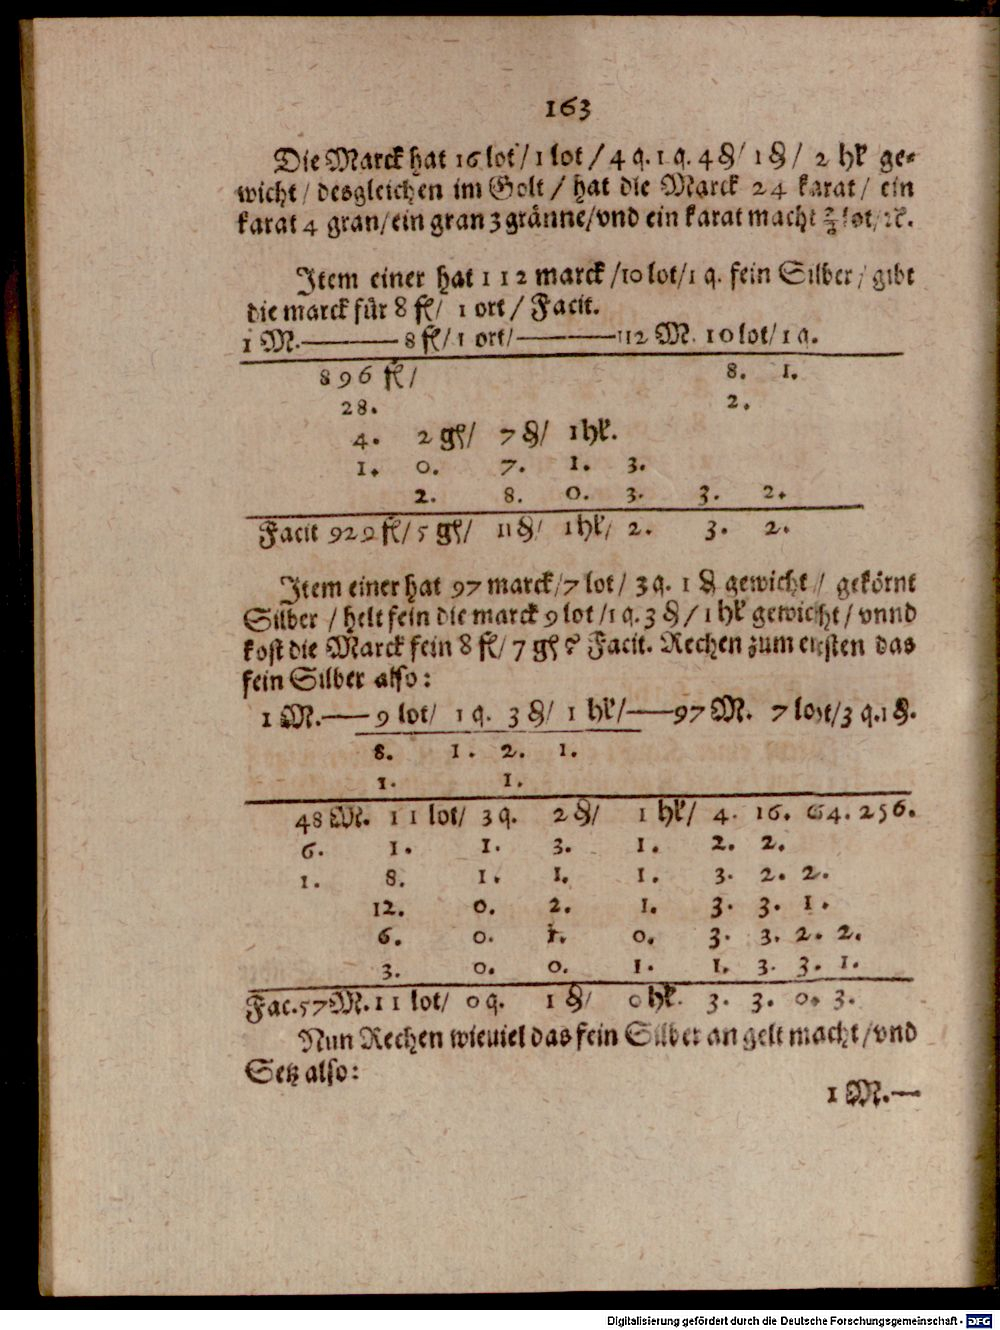 163
Die Marck hat 16 lot / 1 lot / 4 q. 1 q. 4 ₰ / 1 ₰ / 2 hƚ ge⸗
wicht / desgleichen im Golt / hat die Marck 24 karat / ein
karat 4 gran / ein gran 3 gränne / vnd ein karat macht ⅔ lot / ꝛc.
Item einer hat 112 marck / 10 lot / 1 q. fein Silber / gibt
die marck für 8 fl / 1 ort / Facit.
1 M. —— 8 fl / 1 ort / —— 112 M. 10 lot / 1 q.
896 fl / 8. 1.
28. 2.
4. 2 gſ / 7 ₰ / 1 hƚ.
1. 0. 7. 1. 3.
2. 8. 0. 3. 3. 2.
Facit 929 fl / 5 gſ / 11 ₰ / 1 hƚ / 2. 3. 2.
Item einer hat 97 marck / 7 lot / 3 q. 1 ₰ gewicht / gekörnt
Silber / helt fein die marck 9 lot / 1 q. 3 ₰ / 1 hƚ gewicht / vnnd
kost die Marck fein 8 fl / 7 gſ ? Facit. Rechen zum ersten das
fein Silber also:
1 M. —— 9 lot / 1 q. 3 ₰ / 1 hƚ / —— 97 M. 7 lot / 3 q. 1 ₰.
8. 1. 2. 1.
1. 1.
48 M. 11 lot / 3 q. 2 ₰ / 1 hƚ / 4. 16. 64. 256.
6. 1. 1. 3. 1. 2. 2.
1. 8. 1. 1. 1. 3. 2. 2.
12. 0. 2. 1. 3. 3. 1.
6. 0. 1. 0. 3. 3. 2. 2.
3. 0. 0. 1. 1. 3. 3. 1.
Fac. 57 M. 11 lot / 0 q. 1 ₰ / 0 hƚ. 3. 3. 0. 3.
Nun Rechen wieuiel das fein Silber an gelt macht / vnd
Setz also:
1 M. —
Digitalisierung gefördert durch die Deutsche Forschungsgemeinschaft - DFG